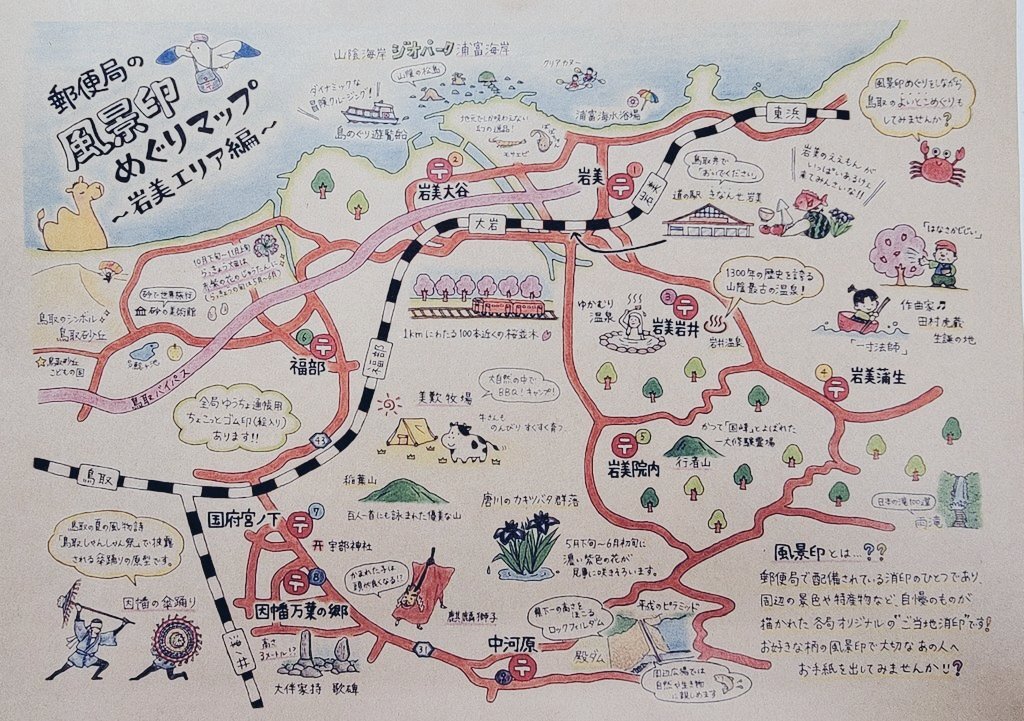 郵便局の
風景印
めぐりマップ
～岩美エリア編～
山陰海岸 ジオパーク 浦富海岸
ダイナミックな
冒険クルージング!
山陰の松島
クリアカヌー
島めぐり遊覧船
地元でしか味わえない
幻の逸品!
モサエビ
浦富海水浴場
東浜
風景印めぐりをしながら
鳥取のよいとこめぐりも
してみませんか?
岩美大谷
〒2
岩美
〒1
岩美
大岩
鳥取弁で
「おいでください」
道の駅 きなんせ岩美
岩美のええもんが
いっぱいあるけえ
来てみんさいな!!
「はなさかじじい」
作曲家♫
田村虎蔵
生誕の地
「一寸法師」
10月下旬～11月上旬
らっきょう畑は
赤紫の花のじゅうたんに
(らっきょうの旬は5月～6月)
砂で世界旅行
砂の美術館
鳥取のシンボル
鳥取砂丘
☆鳥取砂丘
こどもの国
多鯰ヶ池
鳥取バイパス
〒6
福部
福部
1kmにわたる100本近くの桜並木
ゆかむり
温泉
〒3
岩美岩井
岩井温泉
1300年の歴史を誇る
山陰最古の温泉!
〒4
岩美蒲生
全局ゆうちょ通帳用
ちょこっとゴム印(絵入り)
あります!!
美歎牧場
大自然の中で
BBQ!キャンプ!
牛さんも
のんびりすくすく育つ
〒5
岩美院内
かつて「国峰」とよばれた
一大修験霊場
行者山
43
鳥取
稲葉山
百人一首にも詠まれた優美な山
唐川のカキツバタ群落
5月下旬～6月初旬に
濃い紫色の花が
見事に咲きそろいます。
日本の滝100選
雨滝
国府宮ノ下
〒7
宇部神社
鳥取の夏の風物詩
「鳥取しゃんしゃん祭」で披露
される傘踊りの原型です。
因幡の傘踊り
〒8
因幡万葉の郷
かまれた子は
頭が良くなる!?
麒麟獅子
高さ
3メートル!?
大伴家持 歌碑
津ノ井
31
中河原
〒9
県下一の高さをほこる
ロックフィルダム
平成のピラミッド
殿ダム
周辺広場では
自然や生き物
に親しめます
風景印とは...??
郵便局で配備されている消印のひとつであり、
周辺の景色や特産物など、自慢のものが
描かれた各局オリジナルの"ご当地消印"です!
お好きな柄の風景印で大切なあの人へ
お手紙を出してみませんか!!?